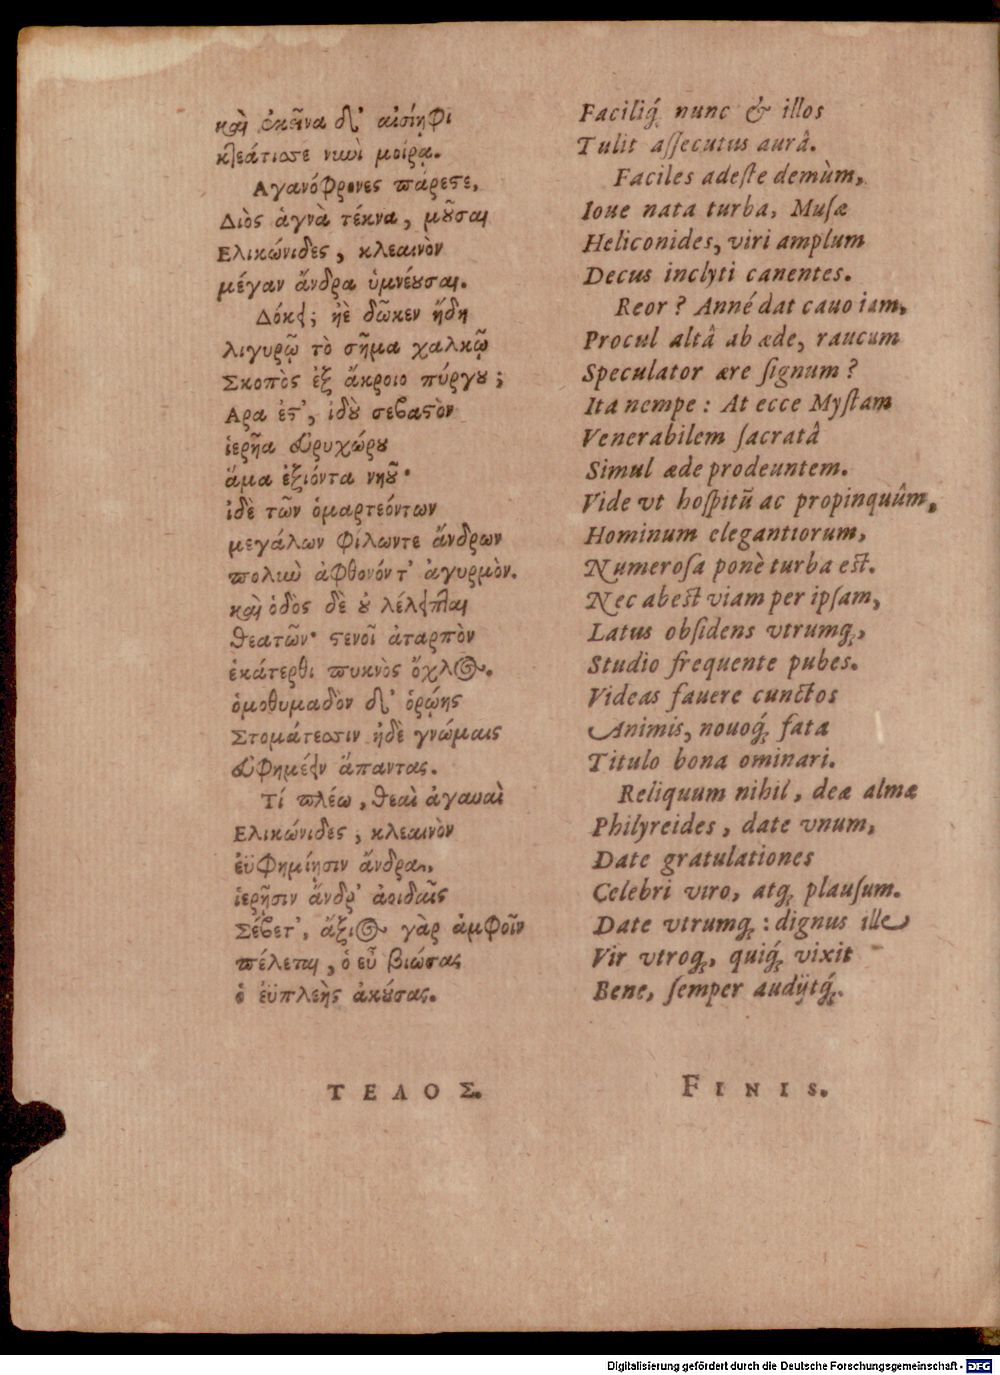 καὶ ἐκεῖνα δι' αἰσίηφι
κλεάτισσε νιωὶ μοίρᾳ.
Αγανόφρονες πάρεστε,
Διὸς ἁγνὰ τέκνα, μοῦσαι
Ελικώνιδες, κλεεινὸν
μέγαν ἄνδρα ὑμνέουσαι.
Δόκει; ἠὲ δῶκεν ἤδη
λιγυρῷ τὸ σῆμα χαλκῷ
Σκοπὸς ἐξ ἄκροιο πύργου;
Αρα ἐστ', ἰδοὺ σεβαστὸν
ἱερῆα εὐρυχώρου
ἅμα ἐξιόντα νηοῦ·
ἰδὲ τῶν ὁμαρτεόντων
μεγάλων φίλων τε ἄνδρων
πολιὼ ἀφθονόντ' ἀγυρμὸν.
καὶ ὁδὸς δὲ οὐ λέλειπται
θεατῶν· στενοῖ ἀταρπὸν
ἑκάτερθι πυκνὸς ὄχλος.
ὁμοθυμαδὸν δι' ὁρῴης
Στομάτεσσιν ἠδὲ γνώμαις
εὐφημεῖν ἅπαντας.
Τί πλέω, θεαὶ ἀγαυαὶ
Ελικώνιδες, κλεεινὸν
ἐϋφημίησιν ἄνδρα,
ἱερῇσιν ἄνδρ' ἀοιδαῖς
Σέβετ', ἄξιος γὰρ ἀμφοῖν
πέλεται, ὁ εὖ βιώσας
ὁ ἐϋπλεὴς ἀκούσας.
ΤΕΛΟΣ.
Faciliq́; nunc & illos
Tulit assecutus aurâ.
Faciles adeste demùm,
Ioue nata turba, Musæ
Heliconides, viri amplum
Decus inclyti canentes.
Reor? Anné dat cauo iam,
Procul altâ ab æde, raucum
Speculator ære signum?
Ita nempe: At ecce Mystam
Venerabilem sacratâ
Simul æde prodeuntem.
Vide vt hospitũ ac propinquûm,
Hominum elegantiorum,
Numerosa ponè turba est.
Nec abest viam per ipsam,
Latus obsidens vtrumq;,
Studio frequente pubes.
Videas fauere cunctos
Animis, nouoq́; fata
Titulo bona ominari.
Reliquum nihil, deæ almæ
Philyreides, date vnum,
Date gratulationes
Celebri viro, atq; plausum.
Date vtrumq;: dignus ille
Vir vtroq;, quiq́; vixit
Bene, semper audijtq́;.
FINIS.
Digitalisierung gefördert durch die Deutsche Forschungsgemeinschaft - DFG